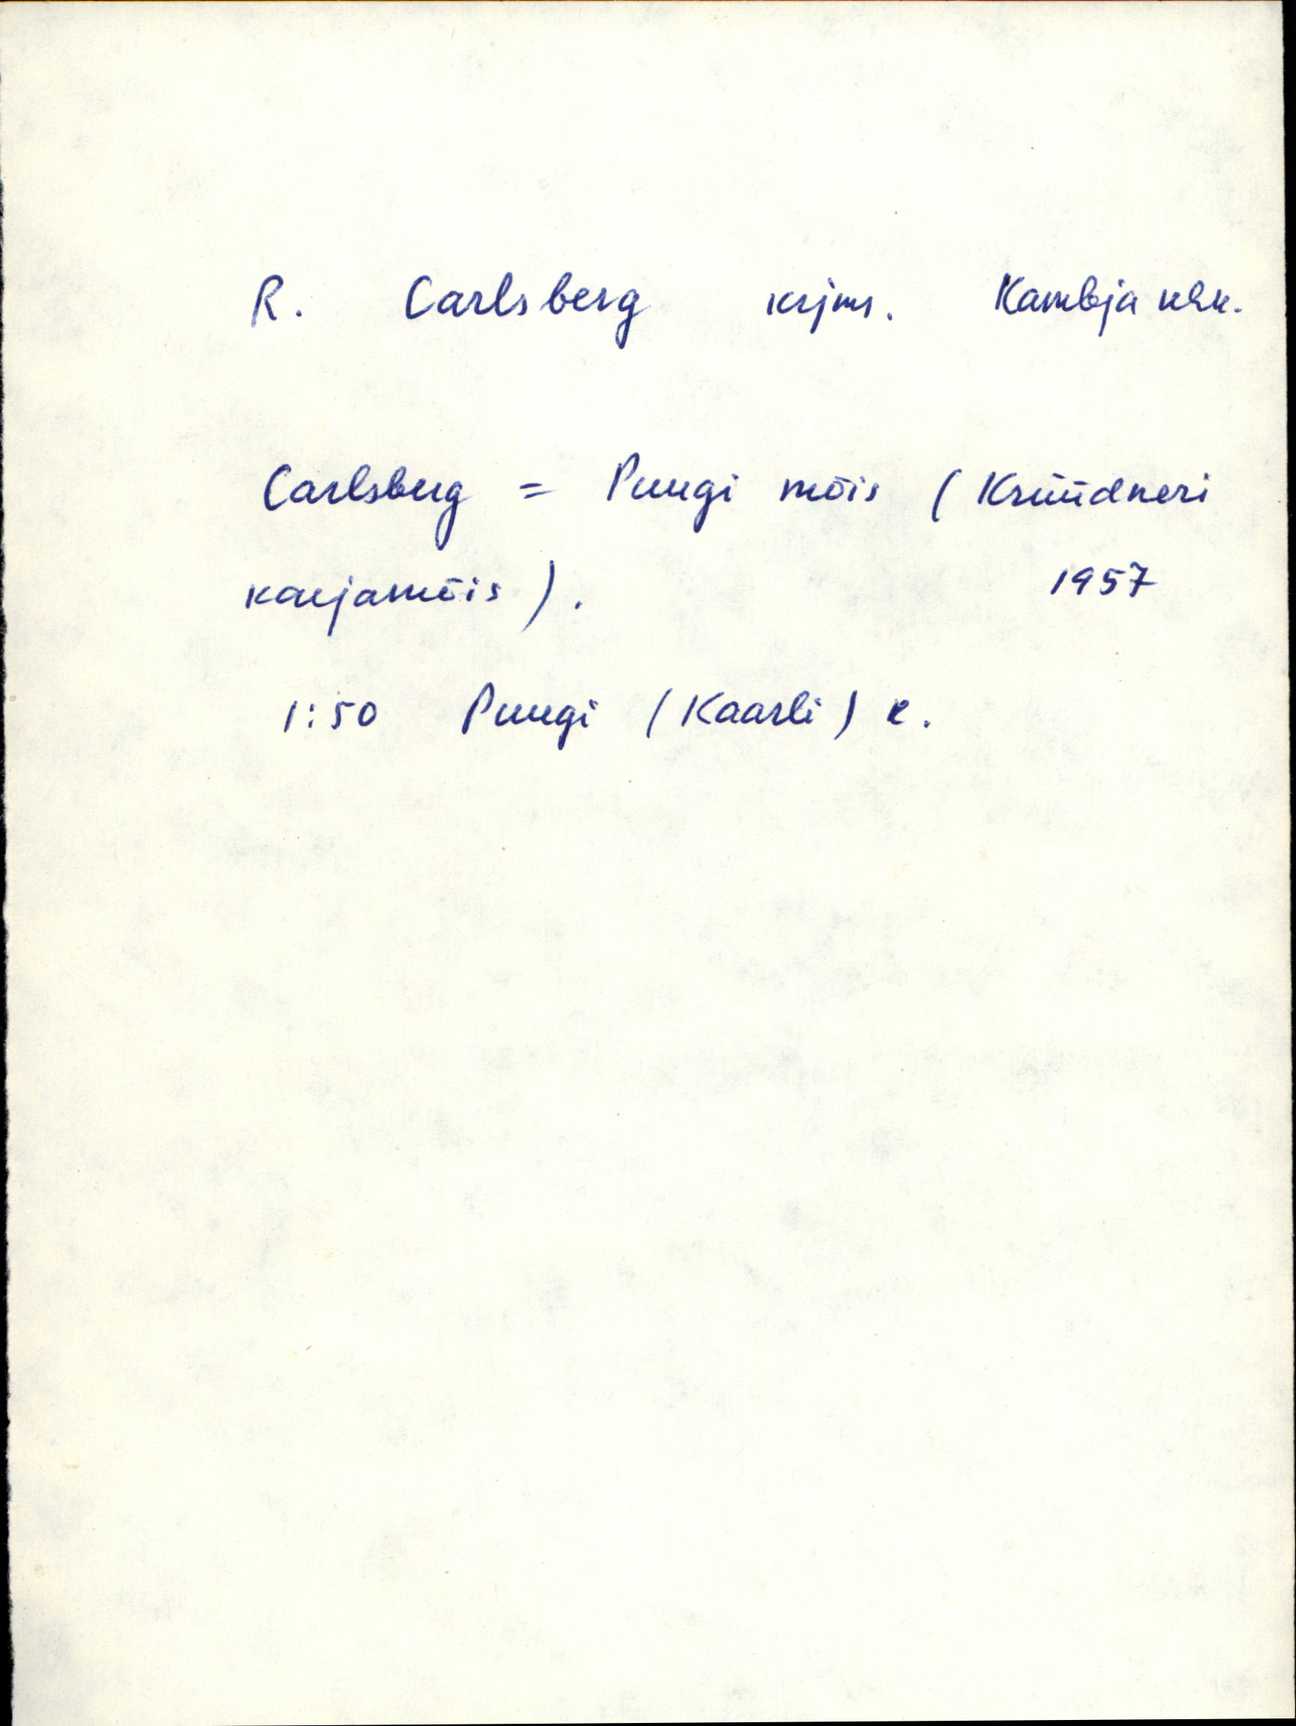 R. Carlsberg krjms. Kambja khk.
Carlsberg = Puugi mõis (Krüüdneri
karjamõis). 1957
1:50 Puugi (Kaarli) e.